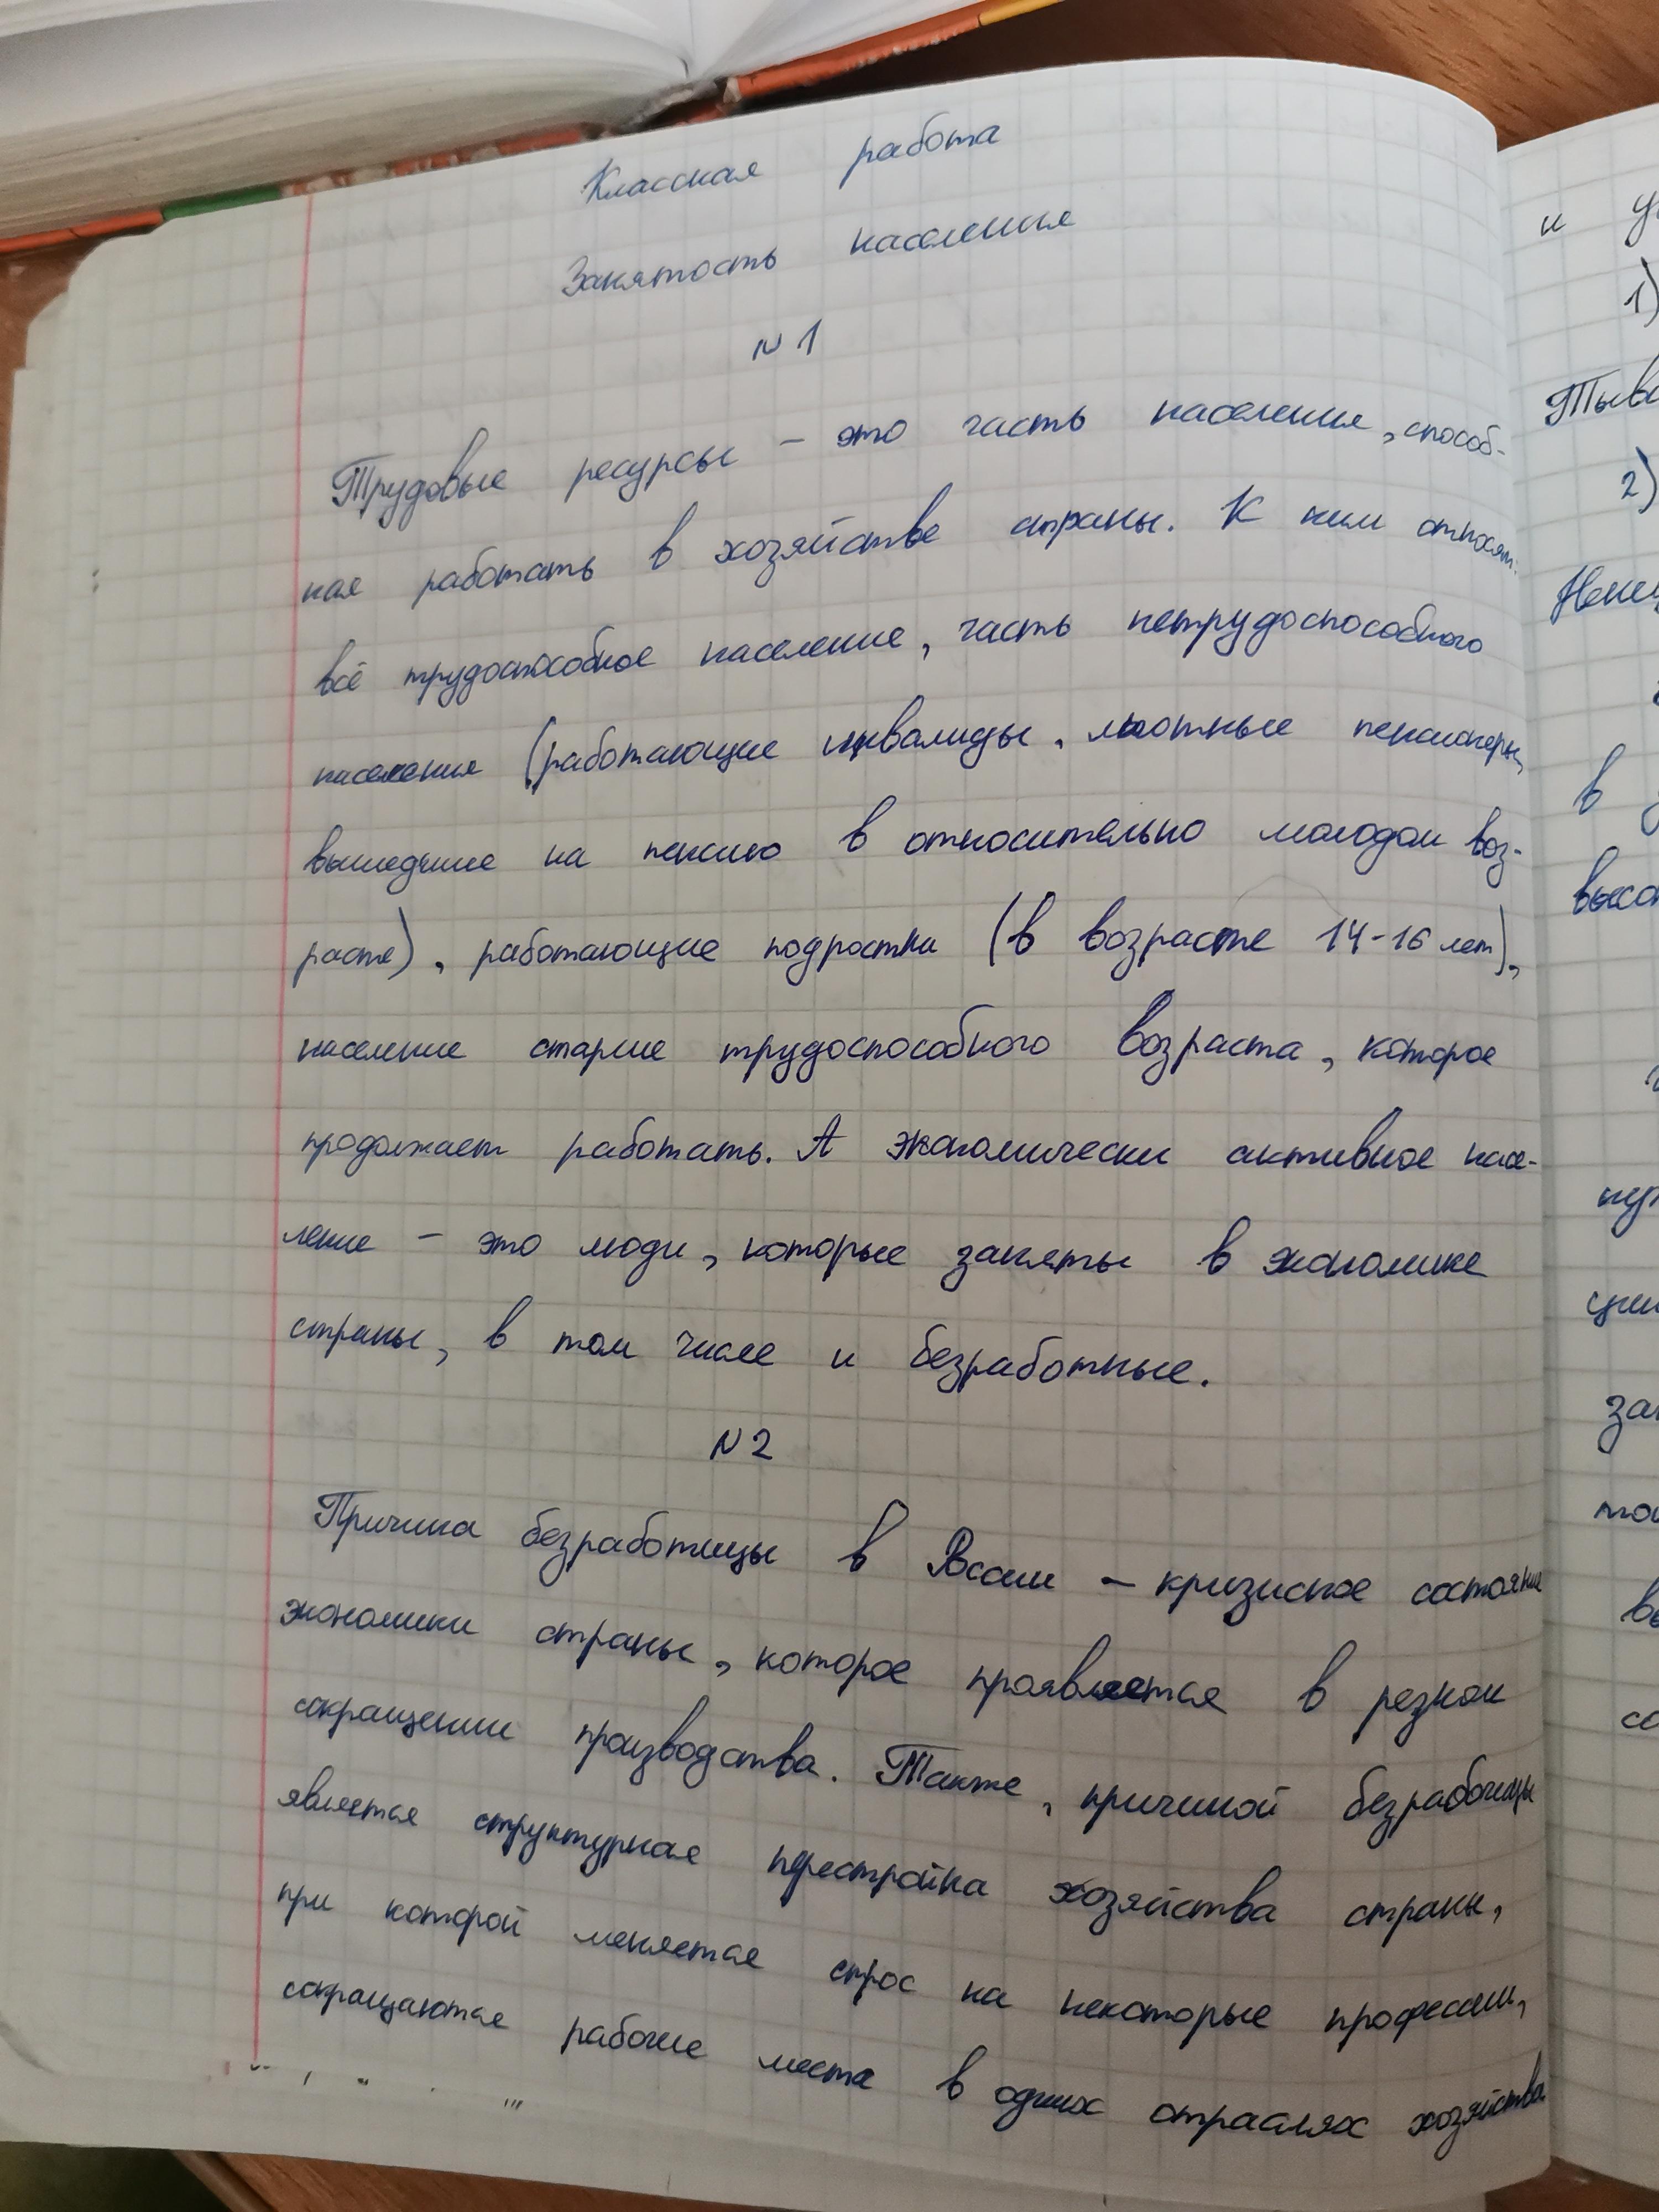 Классная работа
Занятость населения
N 1
Трудовые ресурсы - это часть населения, способ-
ная работать в хозяйстве страны. К ним относят:
всё трудоспособное население, часть нетрудоспособного
населения (работающие инвалиды, льготные пенсионеры,
вышедшие на пенсию в относительно молодом воз-
расте), работающие подростки (в возрасте 14-16 лет),
население старше трудоспособного возраста, которое
продолжает работать. А экономически активное насе-
ление - это люди, которые заняты в экономике
страны, в том числе и безработные.
N 2
Причина безработицы в - кризисное состояние
экономики страны, которое проявляется в резком
сокращении производства. Также, причиной безработицы
является структурная перестройка хозяйства страны,
при которой меняется спрос на некоторые профессии,
сокращаются рабочие места в одних отраслях хозяйства
и
1)
2)
в